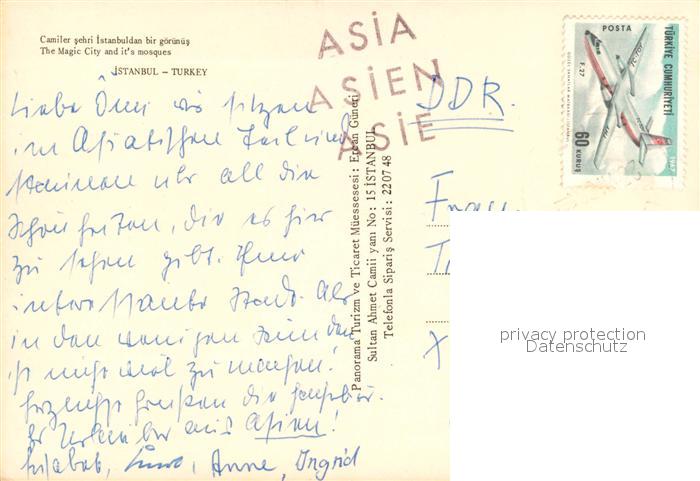 Camiler şehri İstanbuldan bir görünüş
The Magic City and it's mosques
İSTANBUL – TURKEY
ASIA
ASIEN
ASIE
POSTA
TÜRKİYE CUMHURİYETİ
F.27
60 KURUŞ
1967
DDR.
Liebe Omi wir sitzen
im Asiatischen Teil und
staunen über all die
Schönheiten, die es hier
zu sehen gibt. Eine
interessante Stadt. Aber
in den wenigen Stunden
ist nicht viel zu machen!
Herzliche Grüßen die
Ihr Urlauber aus Asien!
Anne, Ingrid
Panorama Turizm ve Ticaret Müessesesi: Ercan Güneri
Sultan Ahmet Camii yanı No: 15 İSTANBUL
Telefonla Sipariş Servisi: 22 07 48
Frau
privacy protection
Datenschutz